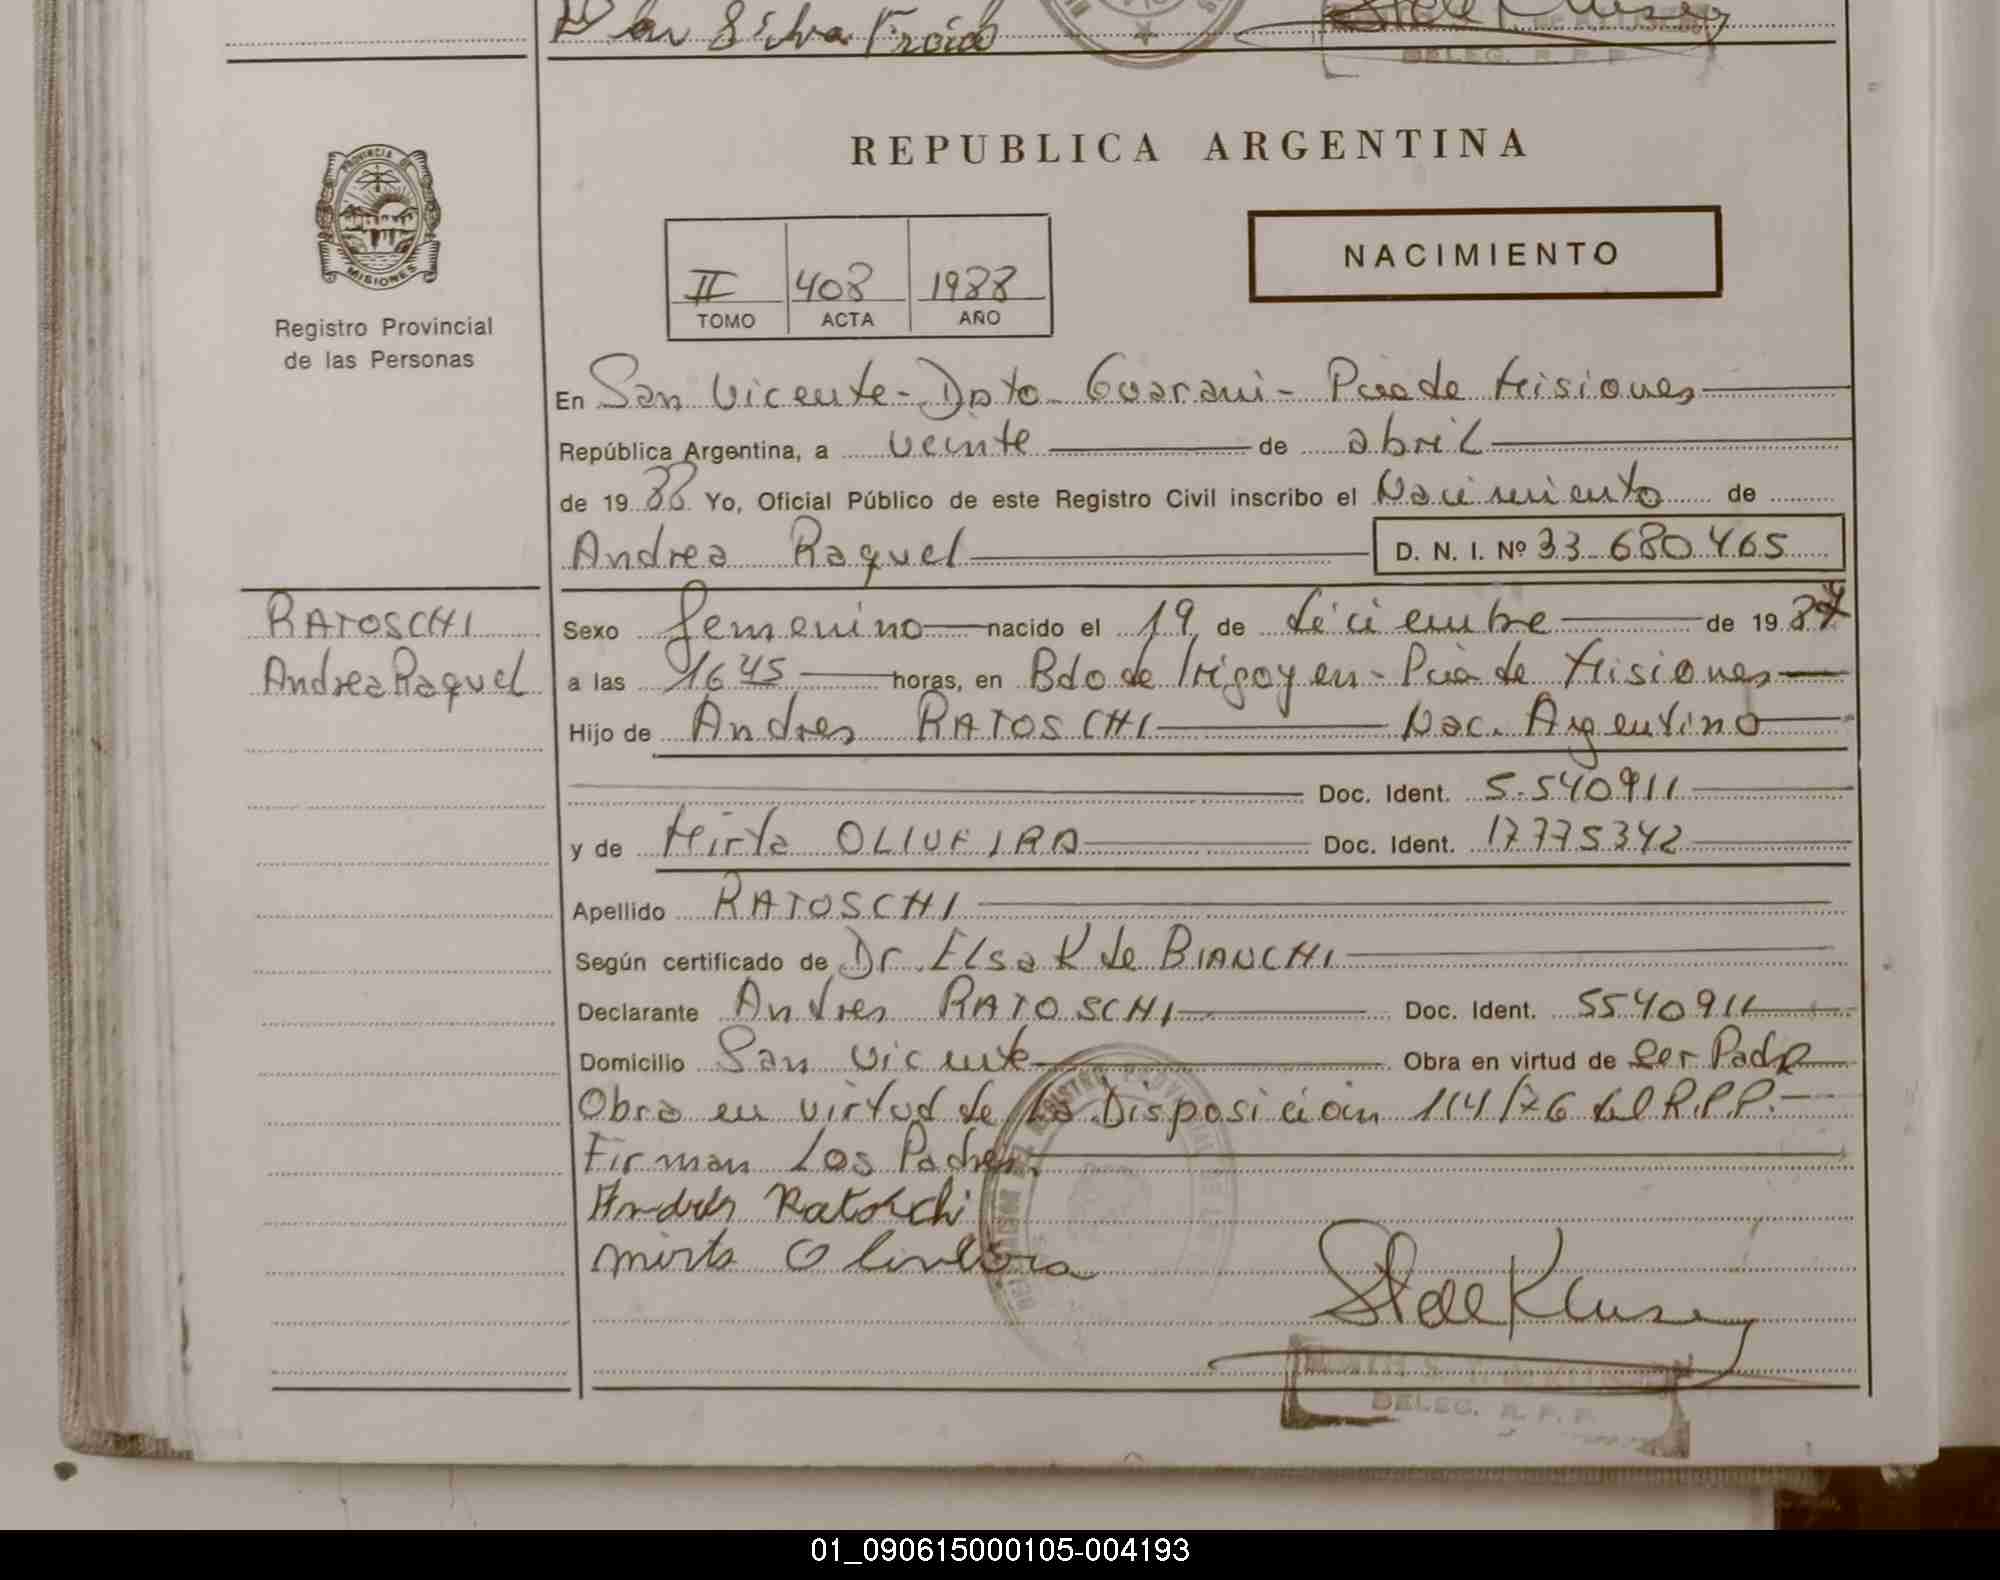 REPUBLICA ARGENTINA
PROVINCIA DE
MISIONES
Registro Provincial
de las Personas
II 408 1988
TOMO ACTA AÑO
NACIMIENTO
En San Vicente - Dpto Guarani - Pcia de Misiones
República Argentina, a veinte de abril
de 1988 Yo, Oficial Público de este Registro Civil inscribo el Nacimiento de
Andrea Raquel D. N. I. Nº 33 680 465
RATOSCHI
Andrea Raquel
Sexo femenino nacido el 19 de diciembre de 1987
a las 16 45 horas, en Bdo de Irigoyen - Pcia de Misiones
Hijo de Andres RATOSCHI Nac. Argentino
Doc. Ident. 5.540911
y de Mirta OLIVEIRA Doc. Ident. 17775342
Apellido RATOSCHI
Según certificado de Dr. Elsa K de BIANCHI
Declarante Andres RATOSCHI Doc. Ident. 5540911
Domicilio San Vicente Obra en virtud de Ser Padre
Obra en virtud de la Disposición 114/76 del R.P.P.-
Firman Los Padres.
Andrés Ratoschi
Mirta Oliveira
DELEG. R. P. P.
01_090615000105-004193